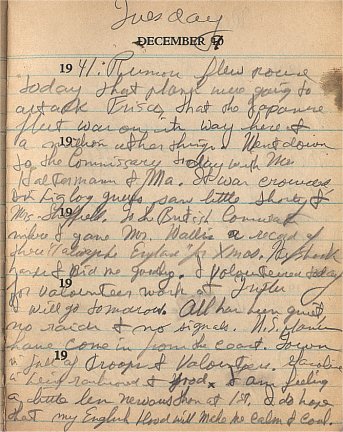 Tuesday
DECEMBER 9
19 41: Rumors flew round
today that planes were going to
attack Frisco, that the Japanese
fleet was on its way here &
a million other things. Went down
19
to the Commissary today with Mrs
& Ma. It was crowded
but saw little Shorty &
Mrs. To the British Consulate
19
where I gave Mr. Wallis a record of
"There'll always be England" for Xmas. He shook
hands & bid me goodbye. I volunteered today
19
for volunteer work at
I will go tomorrow. All has been quiet
no raids & no signals. U.S. planes
have come in from the coast. Town
19
is full of troops & volunteers. Gasoline
is being rationed & food. I am feeling
a little less nervous than at 1st. I do hope
that my English blood will make me calm & cool.